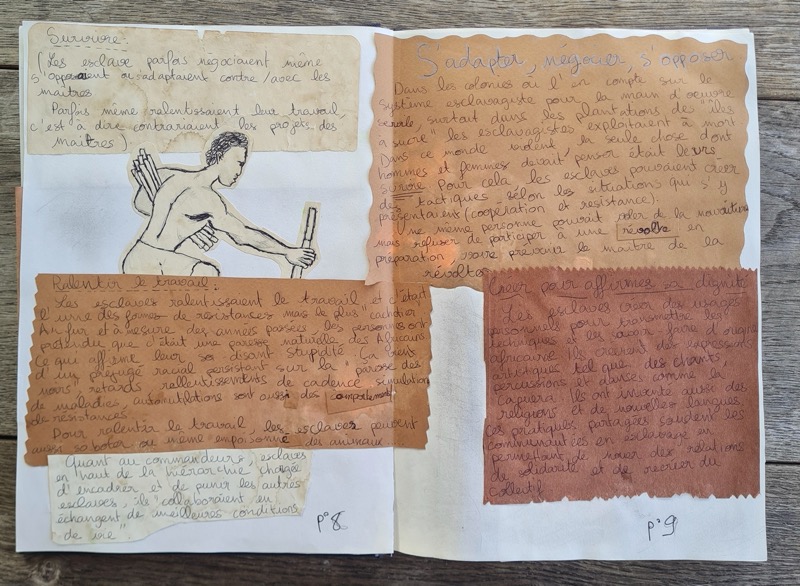 Survivre :
(Les esclave parfois négociaient même
s'opposaient ou s'adaptaient contre/avec les
maîtres
Parfois même ralentissaient leur travail,
c'est à dire contrariaient les projets des
maîtres)
Ralentir le travail :
Les esclaves ralentissaient le travail et c'était
l'une des formes de resistanses mais le plus cachotier
Au fur et à mesure des années passées les personnes ont
prétendue que c'était une paresse naturelle des Africains
Ce qui affirme leur soi disant stupidité. Ça vient
d'un préjugé racial persistant sur la "parose des
noirs" retards rallentissements de cadence simulation
de maladies, automutilations sont aussi des comportements
de résistances.
Pour ralentir le travail les esclaves peuvent
aussi saboter ou même empoisonné des animaux
Quant au commandeurs, esclaves
en haut de la hiérarchie chargée
d'encadrer et de punir les autres
esclaves, ils "collaboraient en
échangent de meilleures conditions
de vie"
p°8
S'adapter, négocier, s'opposer
Dans les colonies où l'en compte sur le
système esclavagiste pour la main d'oeuvre
servile, surtout dans les plantations des "îles
a sucre" les esclavagistes exploitaient à mort
Dans ce monde violent la seule chose dont
hommes et femmes devait penser était leurs
survie Pour cela, les esclaves pouvaient créer
des tactiques sélon les situations qui s'y
présentaient (coopération et resistance).
Une même personne pouvait voler de la nourriture
mais refuser de participer à une révolte en
préparation voire prévenir le maître de la
révolte
Créer pour affirmer sa dignité
Les esclaves créer des usages
personnels pour transmettre les
techniques et le savoir-faire d'origine
africaine. Ils créerent des expressions
artistiques tel que des chants,
percussions et danses comme la
Capuera. Ils ont inventé aussi des
religions et de nouvelles langues
Ces pratiques partagées soudent les
communautées en esclavage en
permettant de nouer des relations
de solidarité et de recréer du
Collectif
p°9